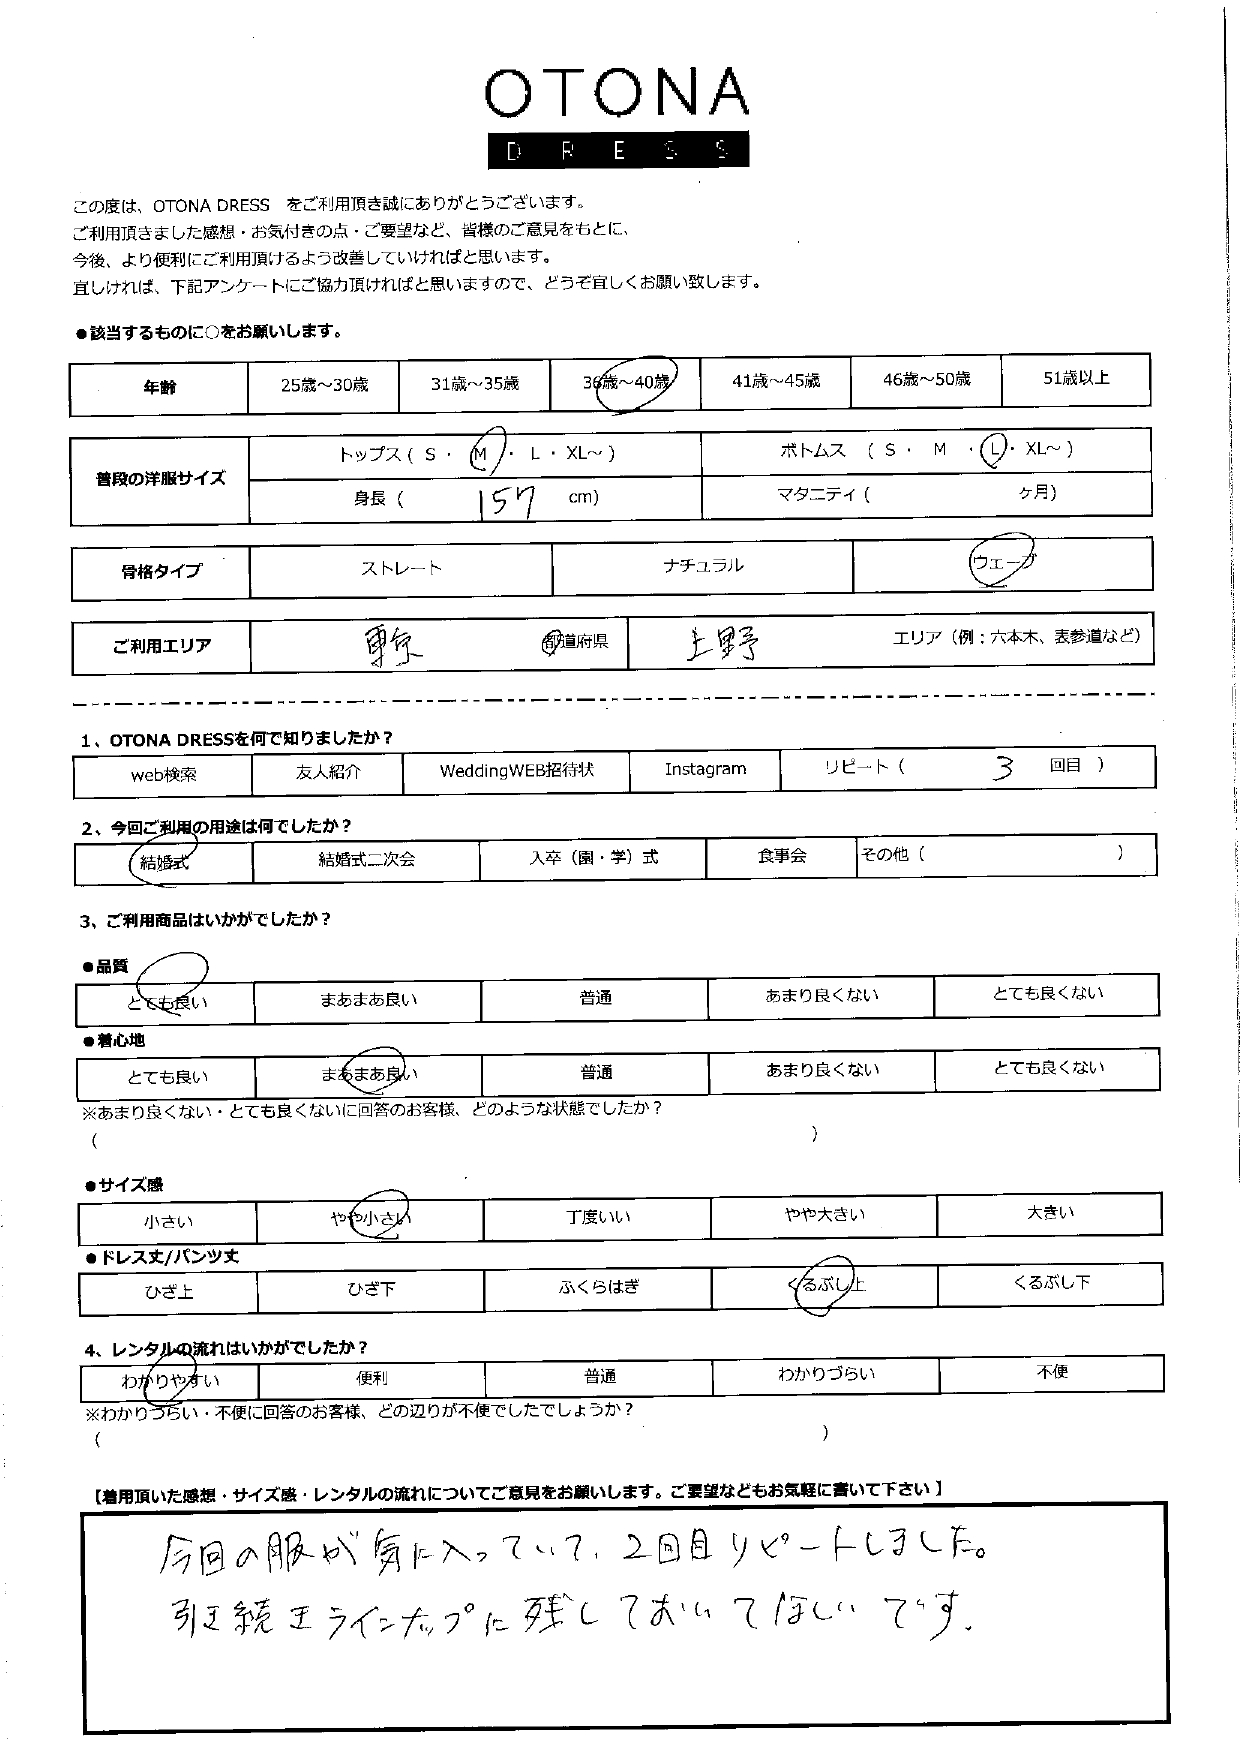 OTONA
DRESS
この度は、OTONA DRESS をご利用頂き誠にありがとうございます。
ご利用頂きました感想・お気付きの点・ご要望など、皆様のご意見をもとに、
今後、より便利にご利用頂けるよう改善していければと思います。
宜しければ、下記アンケートにご協力頂ければと思いますので、どうぞ宜しくお願い致します。
●該当するものに○をお願いします。
年齢 25歳～30歳 31歳～35歳 36歳～40歳 41歳～45歳 46歳～50歳 51歳以上
普段の洋服サイズ トップス ( S ・ M ・ L ・ XL～ ) ボトムス ( S ・ M ・ L ・ XL～ )
身長 ( 157 cm) マタニティ ( ケ月)
骨格タイプ ストレート ナチュラル ウェーブ
ご利用エリア 東京 都道府県 上野 エリア（例：六本木、表参道など）
1、OTONA DRESSを何で知りましたか？
web検索 友人紹介 WeddingWEB招待状 Instagram リピート ( 3 回目 )
2、今回ご利用の用途は何でしたか？
結婚式 結婚式二次会 入卒（園・学）式 食事会 その他 ( )
3、ご利用商品はいかがでしたか？
●品質
とても良い まあまあ良い 普通 あまり良くない とても良くない
●着心地
とても良い まあまあ良い 普通 あまり良くない とても良くない
※あまり良くない・とても良くないに回答のお客様、どのような状態でしたか？
( )
●サイズ感
小さい やや小さい 丁度いい やや大きい 大きい
●ドレス丈/パンツ丈
ひざ上 ひざ下 ふくらはぎ くるぶし上 くるぶし下
4、レンタルの流れはいかがでしたか？
わかりやすい 便利 普通 わかりづらい 不便
※わかりづらい・不便に回答のお客様、どの辺りが不便でしたでしょうか？
( )
【着用頂いた感想・サイズ感・レンタルの流れについてご意見をお願いします。ご要望などもお気軽に書いて下さい】
今回の服が気に入っていて、2回目リピートしました。
引き続きラインナップに残しておいてほしいです。